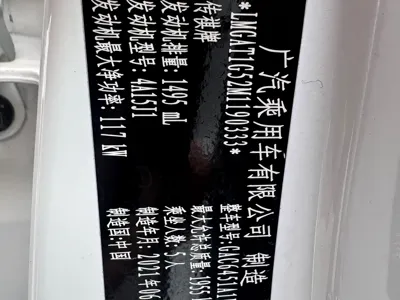 广汽乘用车有限公司 制造
*LMGAT1G52M1190333*
传祺牌
发动机排量: 1495 mL
发动机型号: 4A15J1
发动机最大净功率: 117 kW
整车型号: GAC6451A1
最大允许总质量: 1955
乘坐人数: 5人
制造年月: 2021年06
制造国: 中国